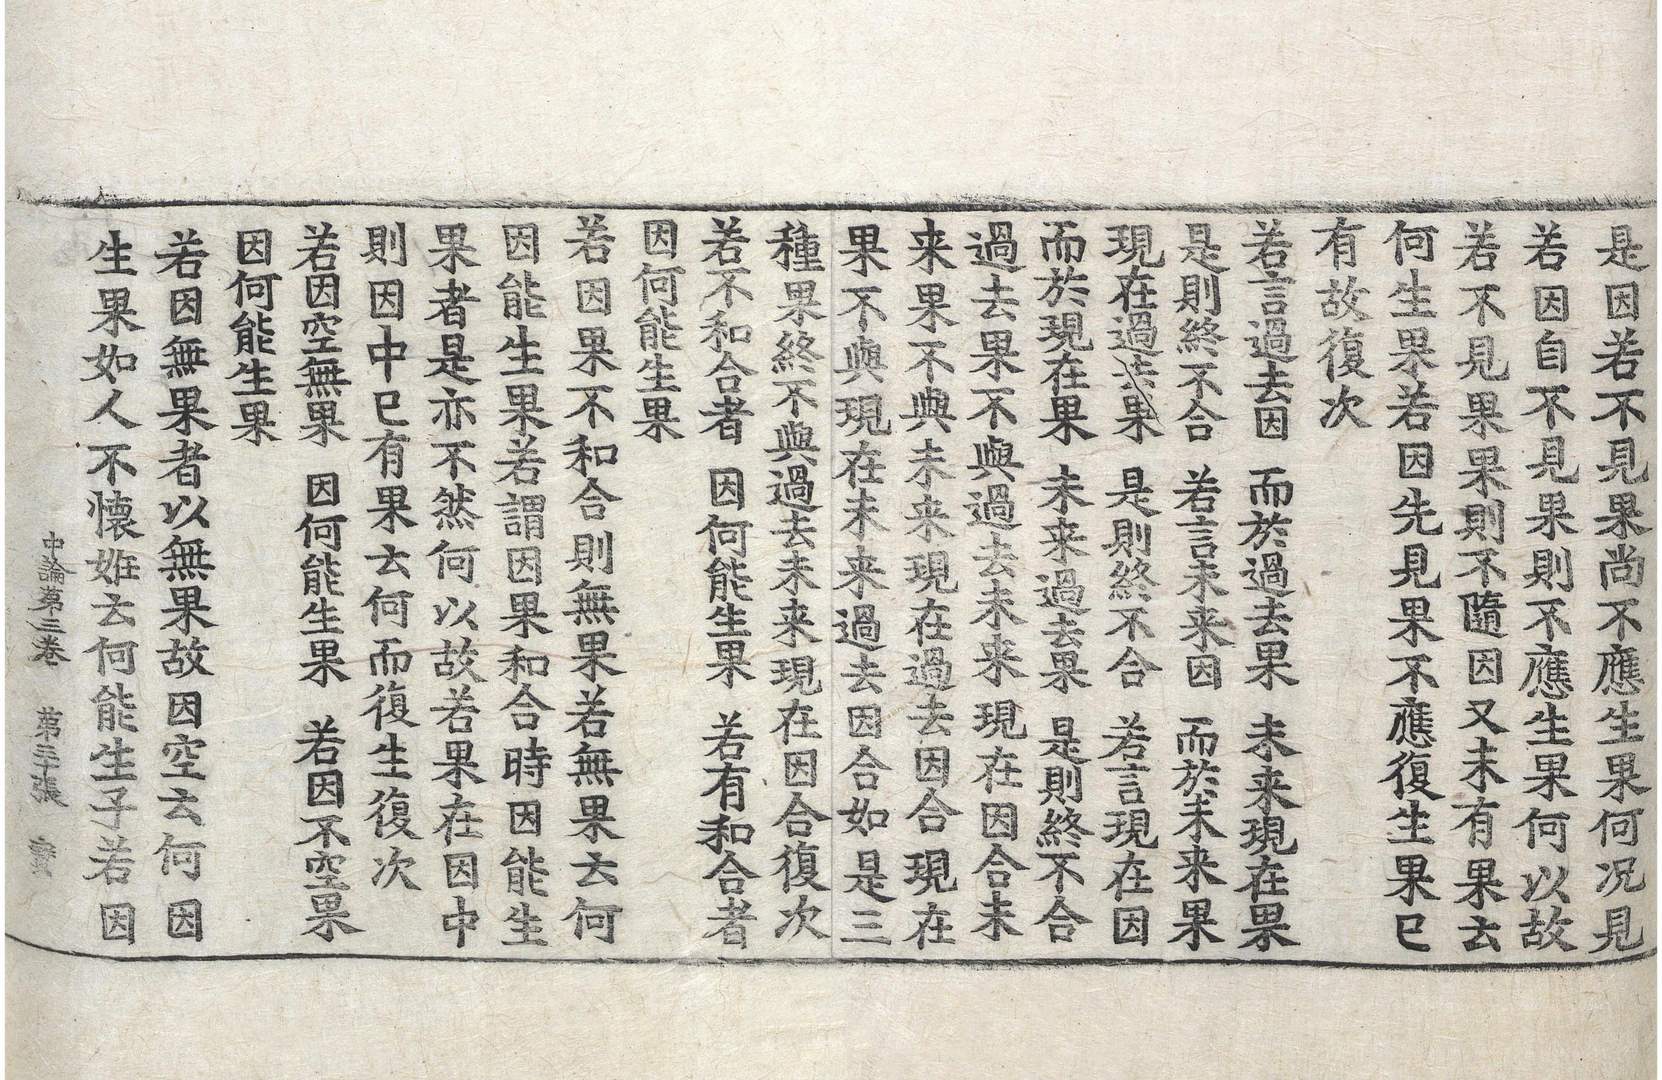 是因若不見果尚不應生果何况見
若因自不見果則不應生果何以故
若不見果果則不隨因又未有果云
何生果若因先見果不應復生果已
有故復次
若言過去因 而於過去果 未来現在果
是則終不合 若言未来因 而於未来果
現在過去果 是則終不合 若言現在因
而於現在果 未来過去果 是則終不合
過去果不與過去未来現在因合未
来果不與未来現在過去因合現在
果不與現在未来過去因合如是三
種果終不與過去未来現在因合復次
若不和合者 因何能生果 若有和合者
因何能生果
若因果不和合則無果若無果云何
因能生果若謂因果和合時因能生
果者是亦不然何以故若果在因中
則因中已有果云何而復生復次
若因空無果 因何能生果 若因不空果
因何能生果
若因無果者以無果故因空云何因
生果如人不懷姙云何能生子若因
中論第三卷 第三十張